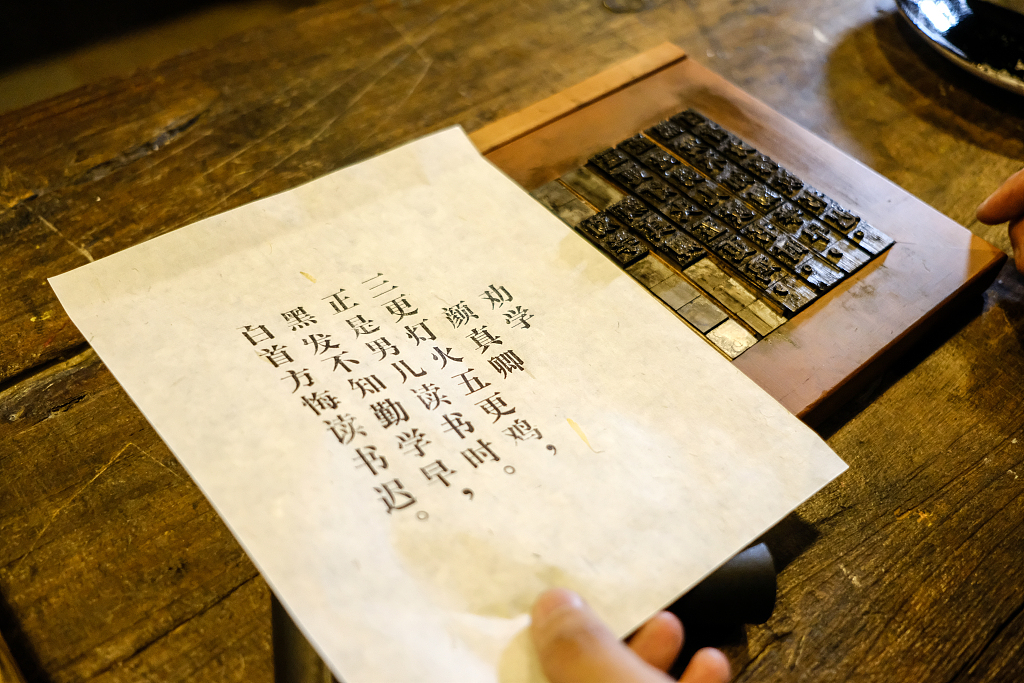 劝学
颜真卿
三更灯火五更鸡，
正是男儿读书时。
黑发不知勤学早，
白首方悔读书迟。